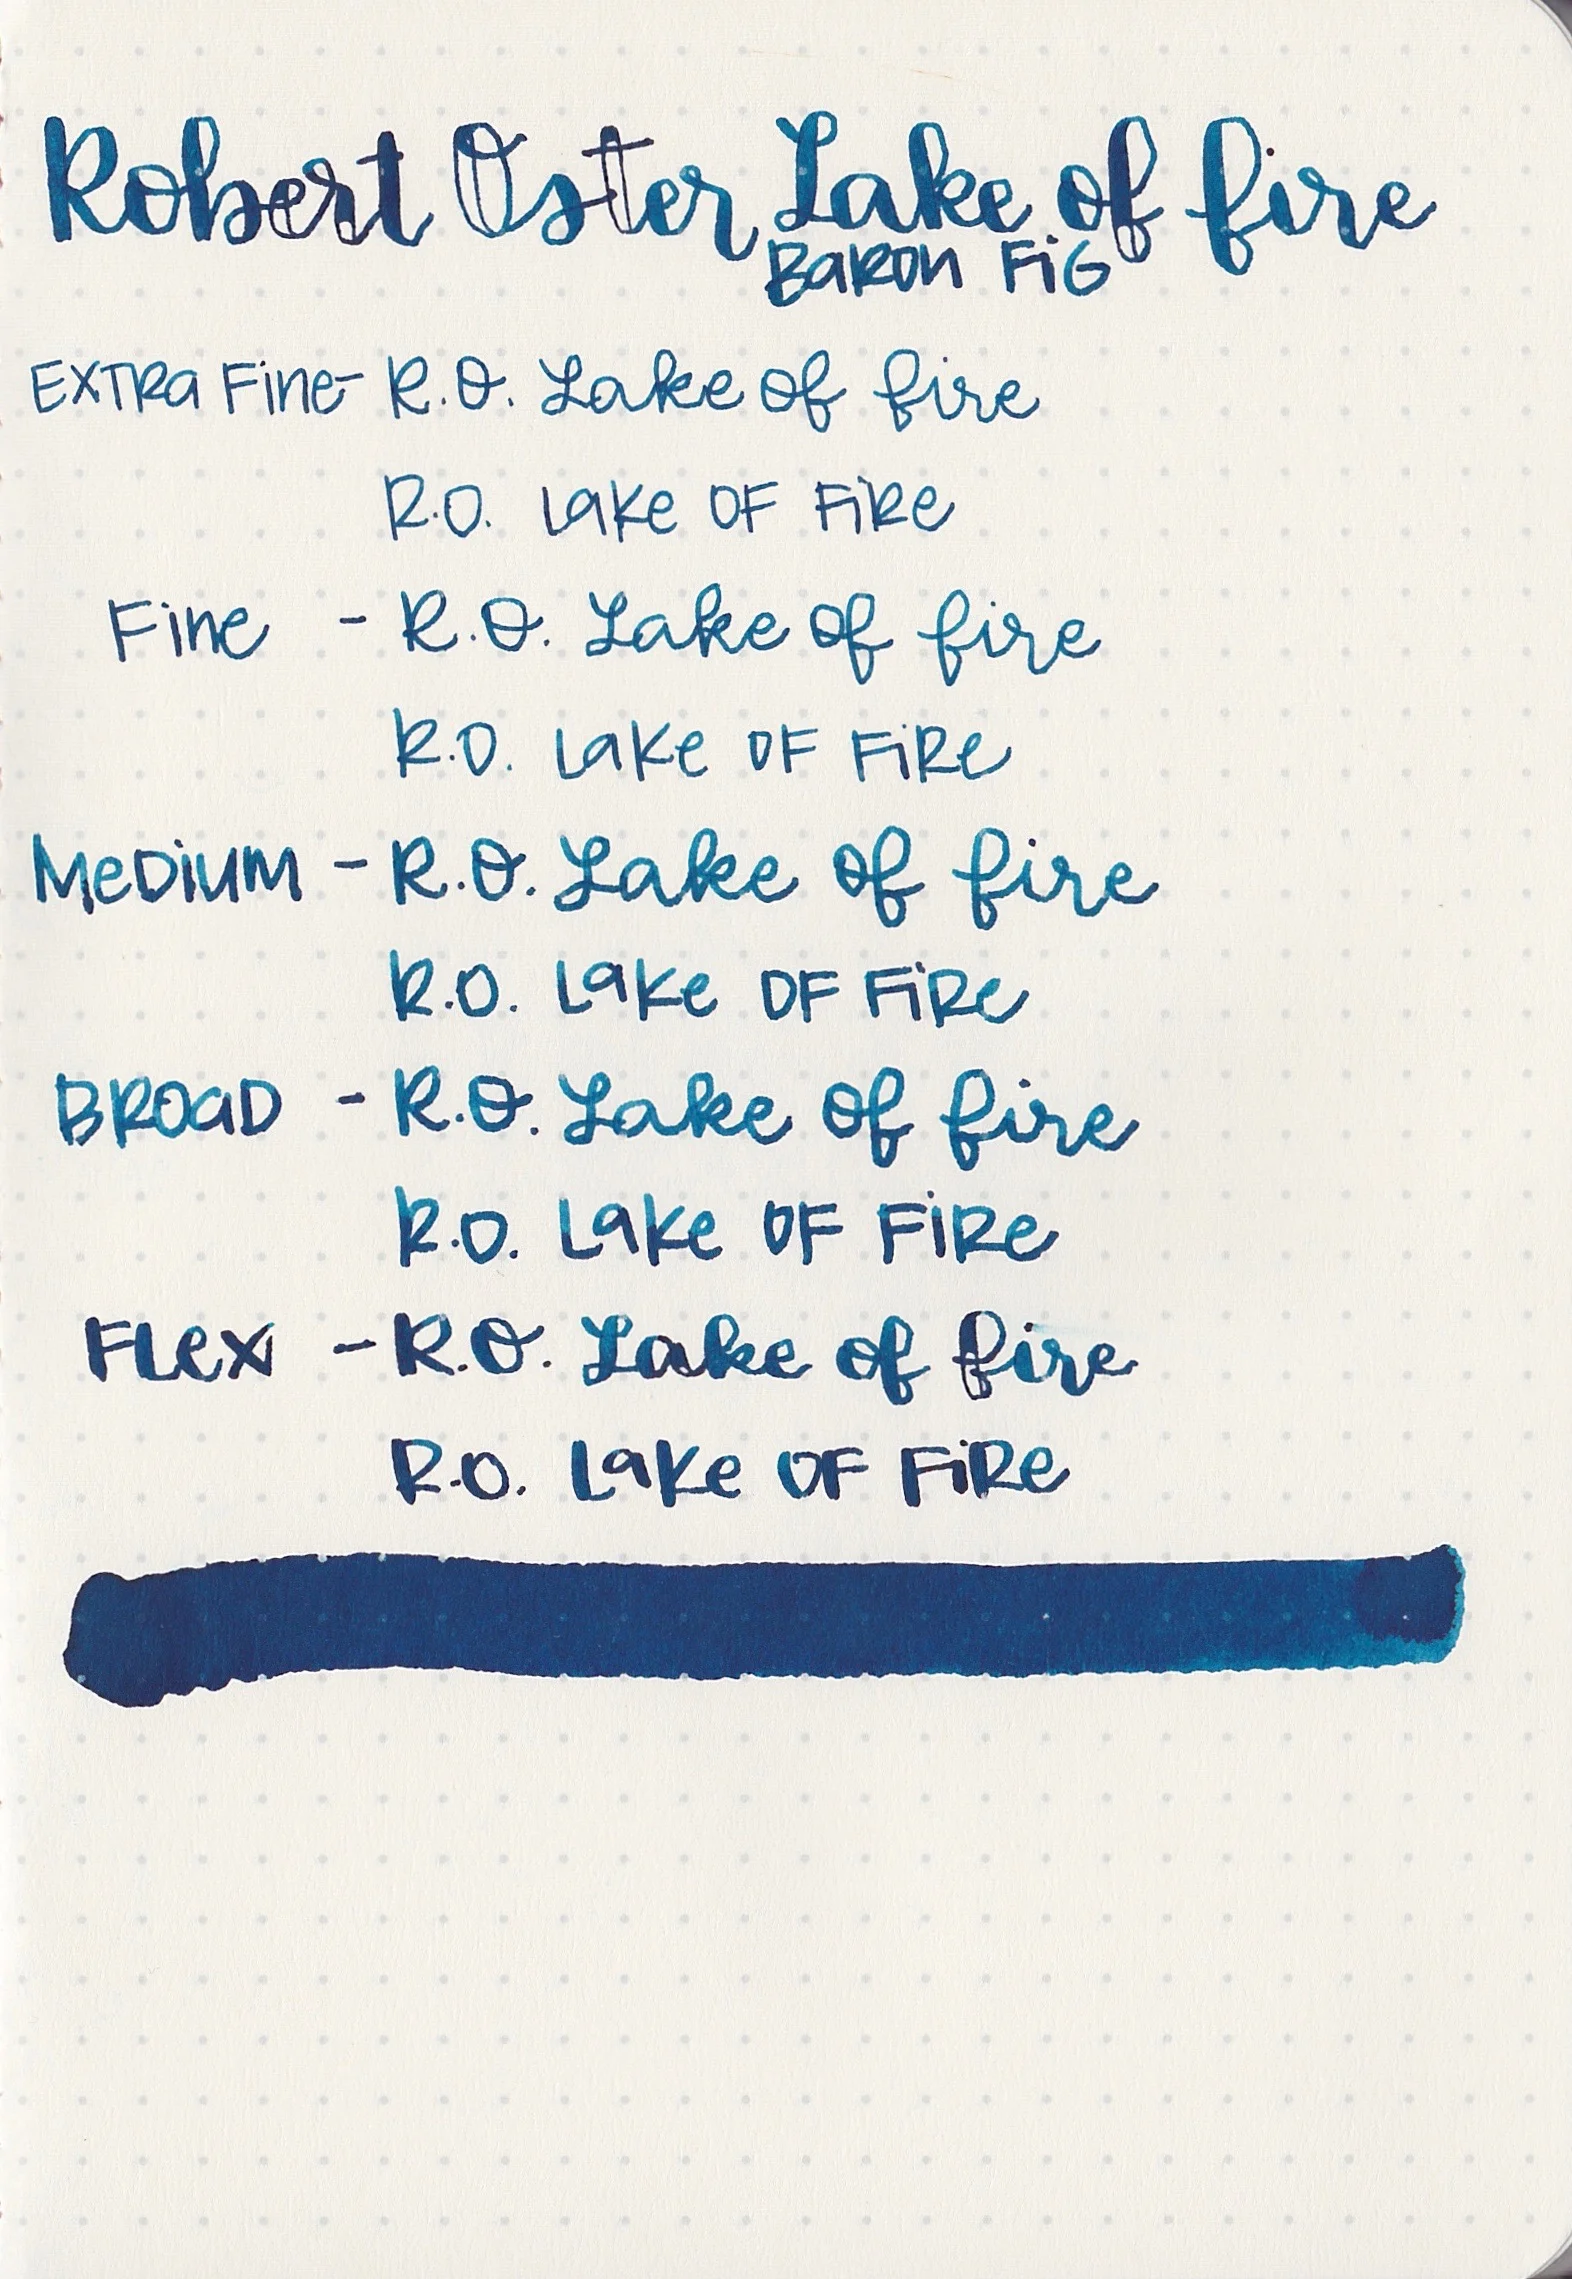 Robert Oster Lake of fire
Baron Fig
Extra Fine - R.O. Lake of fire
R.O. Lake of Fire
Fine - R.O. Lake of fire
R.O. Lake of Fire
Medium - R.O. Lake of fire
R.O. Lake of Fire
Broad - R.O. Lake of fire
R.O. Lake of Fire
Flex - R.O. Lake of fire
R.O. Lake of Fire